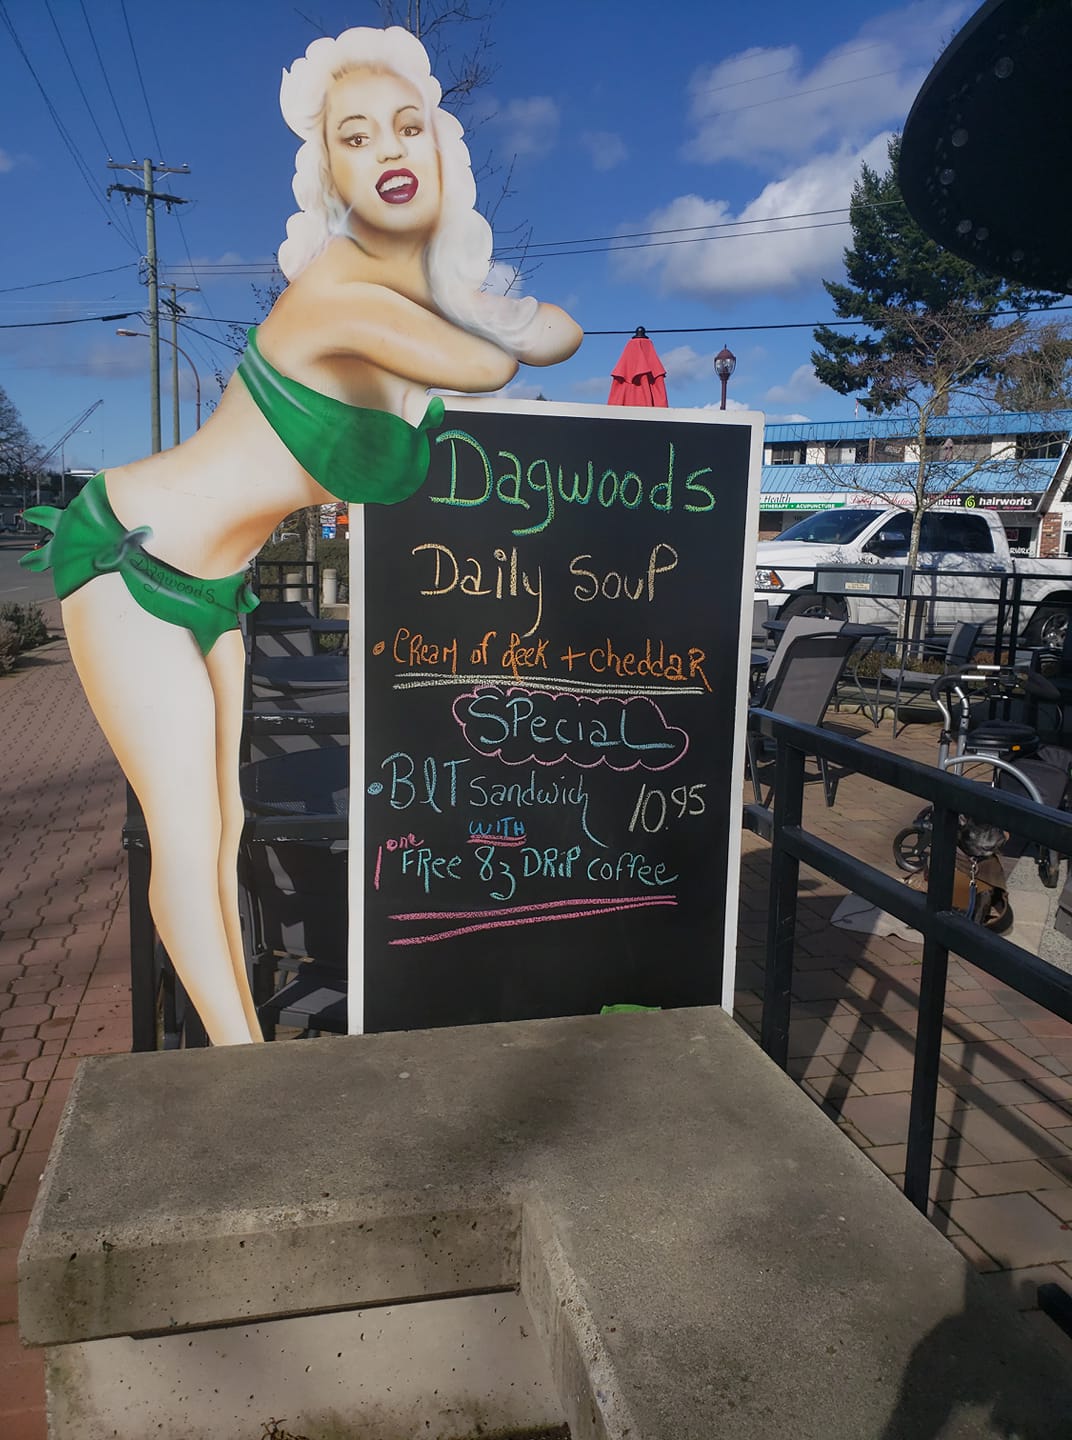 Dagwoods
Daily Soup
• Cream of leek + cheddar
Special
• BLT Sandwich 10.95
with
1 one FRee 8z DRiP coffee
Dagwoods
Health
OTHERAPY • ACUPUNCTURE
hairworks